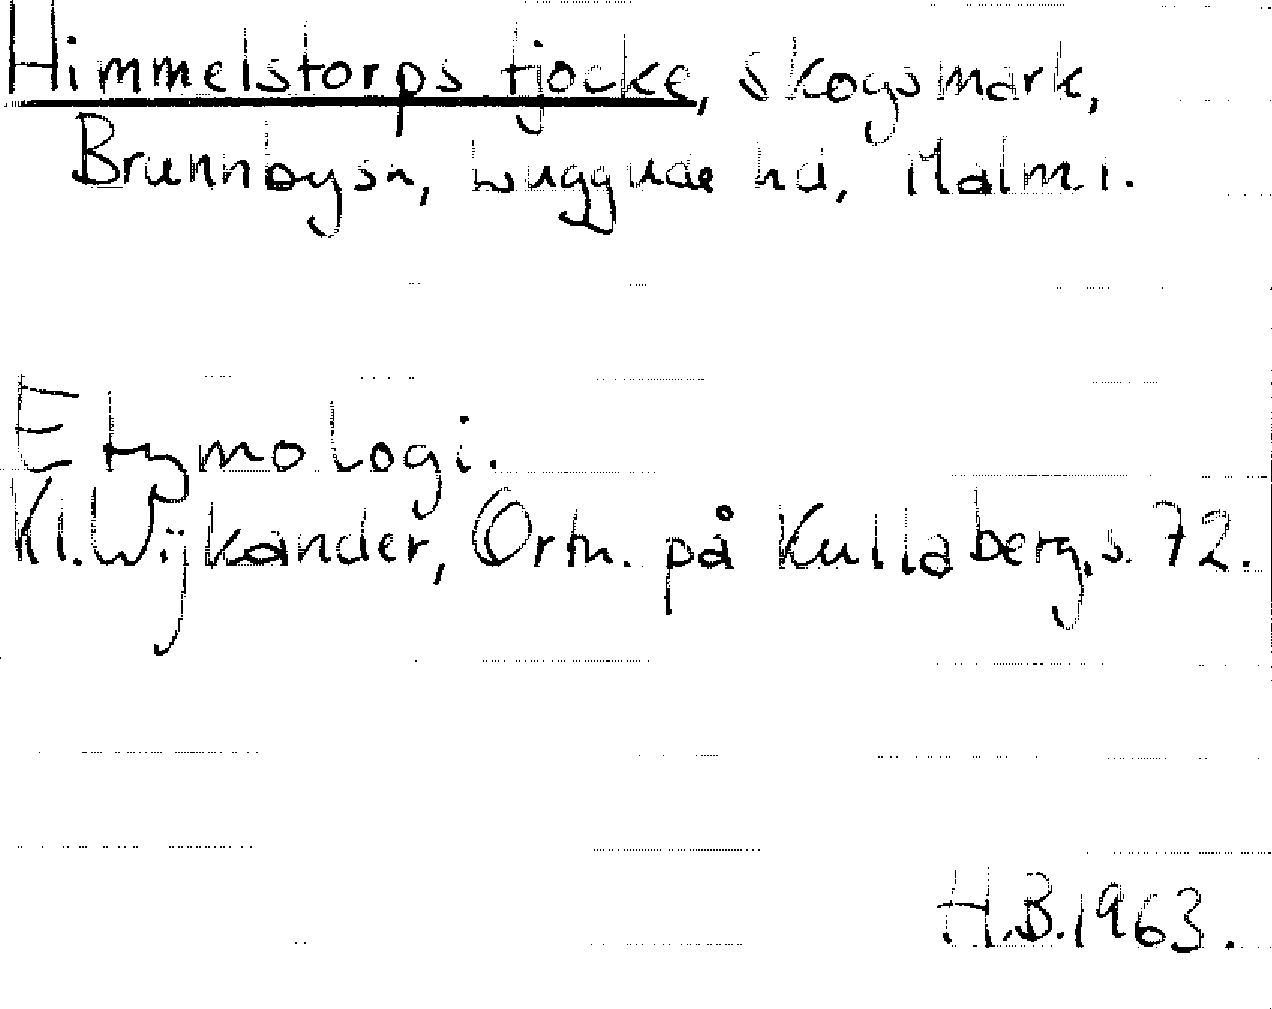 Himmelstorps tjocke, skogsmark,
Brunnby sn, Luggude hd, Malm l.
Etymologi.
Kl. Wijkander, Ortn. på Kullaberg, s. 72.
H.B. 1963.